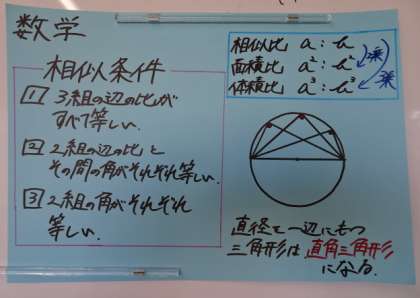 数学
相似条件
1 3組の辺の比が
すべて等しい.
2 2組の辺の比と
その間の角がそれぞれ等しい.
3 2組の角がそれぞれ
等しい.
相似比 a : b
面積比 a² : b² 2乗
体積比 a³ : b³ 3乗
直径を一辺にもつ
三角形は 直角三角形
になる.